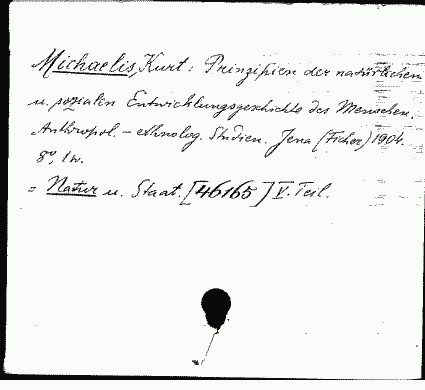 Michaelis, Kurt: Prinzipien der natürlichen
u. sozialen Entwicklungsgeschichte des Menschen.
Anthropol. - ethnolog. Studien. Jena (Ficher) 1904.
8°, 1 w.
= Natur u. Staat. [46165] V. Teil.